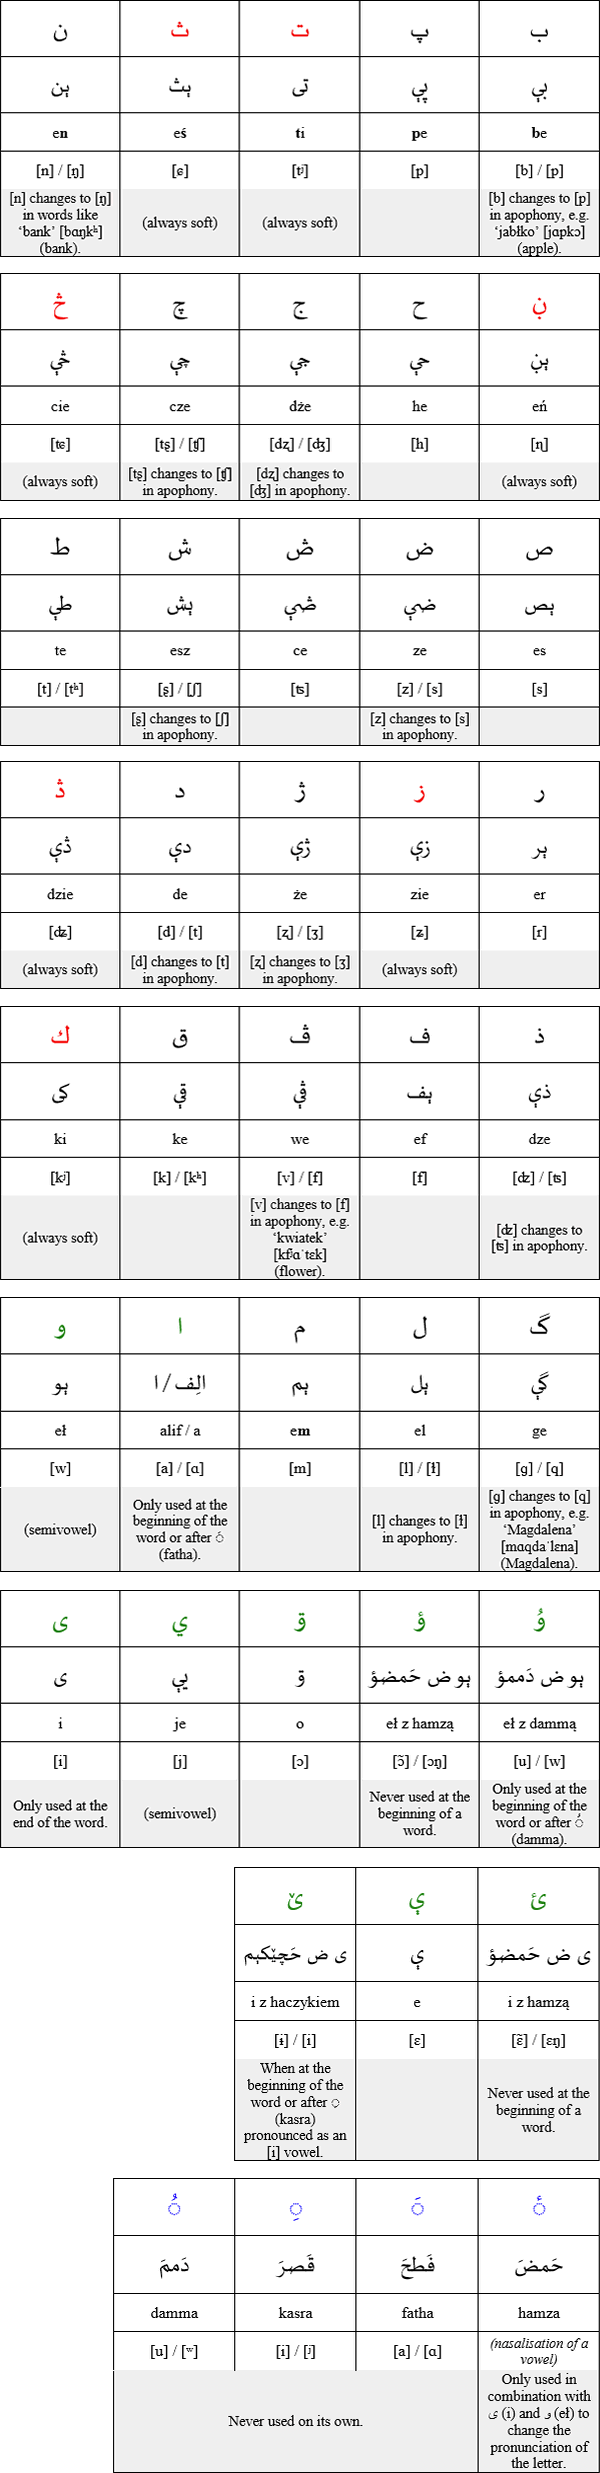 ب پ ت ث ن
بې پې تى ېث ېن
en eś ti pe be
[n] / [ŋ] [ɕ] [tʲ] [p] [b] / [p]
[n] changes to [ŋ]
in words like
‘bank’ [bɑŋkʰ]
(bank).
(always soft)
(always soft)
[b] changes to [p]
in apophony, e.g.
‘jabłko’ [jɑpkɔ]
(apple).
ڹ ح ج چ څ
ېڹ حې جې چې څې
cie cze dże he eń
[ʨ] [tʂ] / [ʧ] [dʐ] / [ʤ] [h] [ɲ]
(always soft)
[tʂ] changes to [ʧ]
in apophony.
[dʐ] changes to
[ʤ] in apophony.
(always soft)
ص ض ڞ ش ط
ېص ضې ڞې ېش طې
te esz ce ze es
[t] / [tʰ] [ʂ] / [ʃ] [ʦ] [z] / [s] [s]
[ʂ] changes to [ʃ]
in apophony.
[z] changes to [s]
in apophony.
ر ز ژ د ڎ
ېر زې ژې دې ڎې
dzie de że zie er
[ʥ] [d] / [t] [ʐ] / [ʒ] [ʑ] [r]
(always soft)
[d] changes to [t]
in apophony.
[ʐ] changes to [ʒ]
in apophony.
(always soft)
ذ ف ڤ ق ك
ذې ېف ڤې قې كى
ki ke we ef dze
[kʲ] [k] / [kʰ] [v] / [f] [f] [ʣ] / [ʦ]
(always soft)
[v] changes to [f]
in apophony, e.g.
‘kwiatek’
[kfʲɑˈtɛk]
(flower).
[ʣ] changes to
[ʦ] in apophony.
گ ل م ا و
گې ېل ېم الِف/ا ېو
eł alif / a em el ge
[w] [a] / [ɑ] [m] [l] / [ɫ] [ɡ] / [q]
(semivowel)
Only used at the
beginning of the
word or after ◌َ
(fatha).
[l] changes to [ɫ]
in apophony.
[ɡ] changes to [q]
in apophony, e.g.
‘Magdalena’
[mɑqdaˈlɛna]
(Magdalena).
وُ ؤ ۊ ي ى
ېو ض دَممؤ ېو ض حَمضؤ ۊ يې ى
i je o eł z hamzą eł z dammą
[i] [j] [ɔ] [ɔ̃] / [ɔŋ] [u] / [w]
Only used at the
end of the word.
(semivowel)
Never used at the
beginning of a
word.
Only used at the
beginning of the
word or after ◌ُ
(damma).
ئ ې ێ
ى ض حَمضؤ ې ى ض حَچێكېم
i z haczykiem e i z hamzą
[ɨ] / [ɪ] [ɛ] [ɛ̃] / [ɛŋ]
When at the
beginning of the
word or after ◌ِ
(kasra)
pronounced as an
[i] vowel.
Never used at the
beginning of a
word.
◌ٔ ◌َ ◌ِ ◌ُ
حَمضَ فَطحَ قَصرَ دَممَ
damma kasra fatha hamza
[u] / [ʷ] [i] / [ʲ] [a] / [ɑ] (nasalisation of a
vowel)
Never used on its own.
Only used in
combination with
ى (i) and و (eł) to
change the
pronunciation of
the letter.